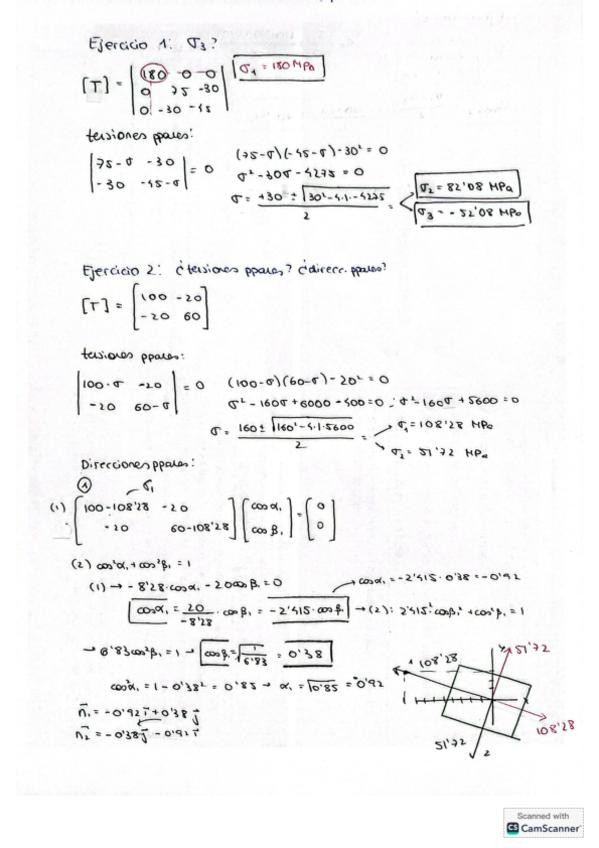 Ejercicio 1: σ₃?
[T] = |180 0 0| σ₁ = 180 MPa
|0 75 -30|
|0 -30 -45|
tensiones ppales:
|75-σ -30| = 0 (75-σ)(-45-σ)-30² = 0
|-30 -45-σ| σ²-30σ-4275 = 0
σ = +30 ± √30²-4·1·-4275 / 2 = σ₂ = 82'08 MPa
σ₃ = -52'08 MPa
Ejercicio 2: ¿tensiones ppales? ¿direcc. ppales?
[T] = [100 -20]
[-20 60]
tensiones ppales:
|100-σ -20| = 0 (100-σ)(60-σ)-20² = 0
|-20 60-σ| σ²-160σ+6000-400=0 ; σ²-160σ+5600=0
σ = 160 ± √160²-4·1·5600 / 2 = σ₁ = 108'28 MPa
σ₂ = 51'72 MPa
Direcciones ppales:
① σ₁
(1) [100-108'28 -20] [cos α₁] = [0]
[-20 60-108'28] [cos β₁] [0]
(2) cos²α₁+cos²β₁ = 1
(1) → -8'28·cosα₁ - 20cosβ₁ = 0 cosα₁ = -2'415·0'38 = -0'92
cosα₁ = 20/-8'28 · cosβ₁ = -2'415·cosβ₁ → (2): 2'415²cosβ₁²+cos²β₁ = 1
→ 6'83cos²β₁ = 1 → cosβ₁ = √1/6'83 = 0'38
cos²α₁ = 1-0'38² = 0'85 → α₁ = √0'85 = -0'92
n₁ = -0'92 i + 0'38 j
n₂ = -0'38 j - 0'92 i
y 51'72
1 108'28
x
108'28
51'72
2
Scanned with
CS CamScanner